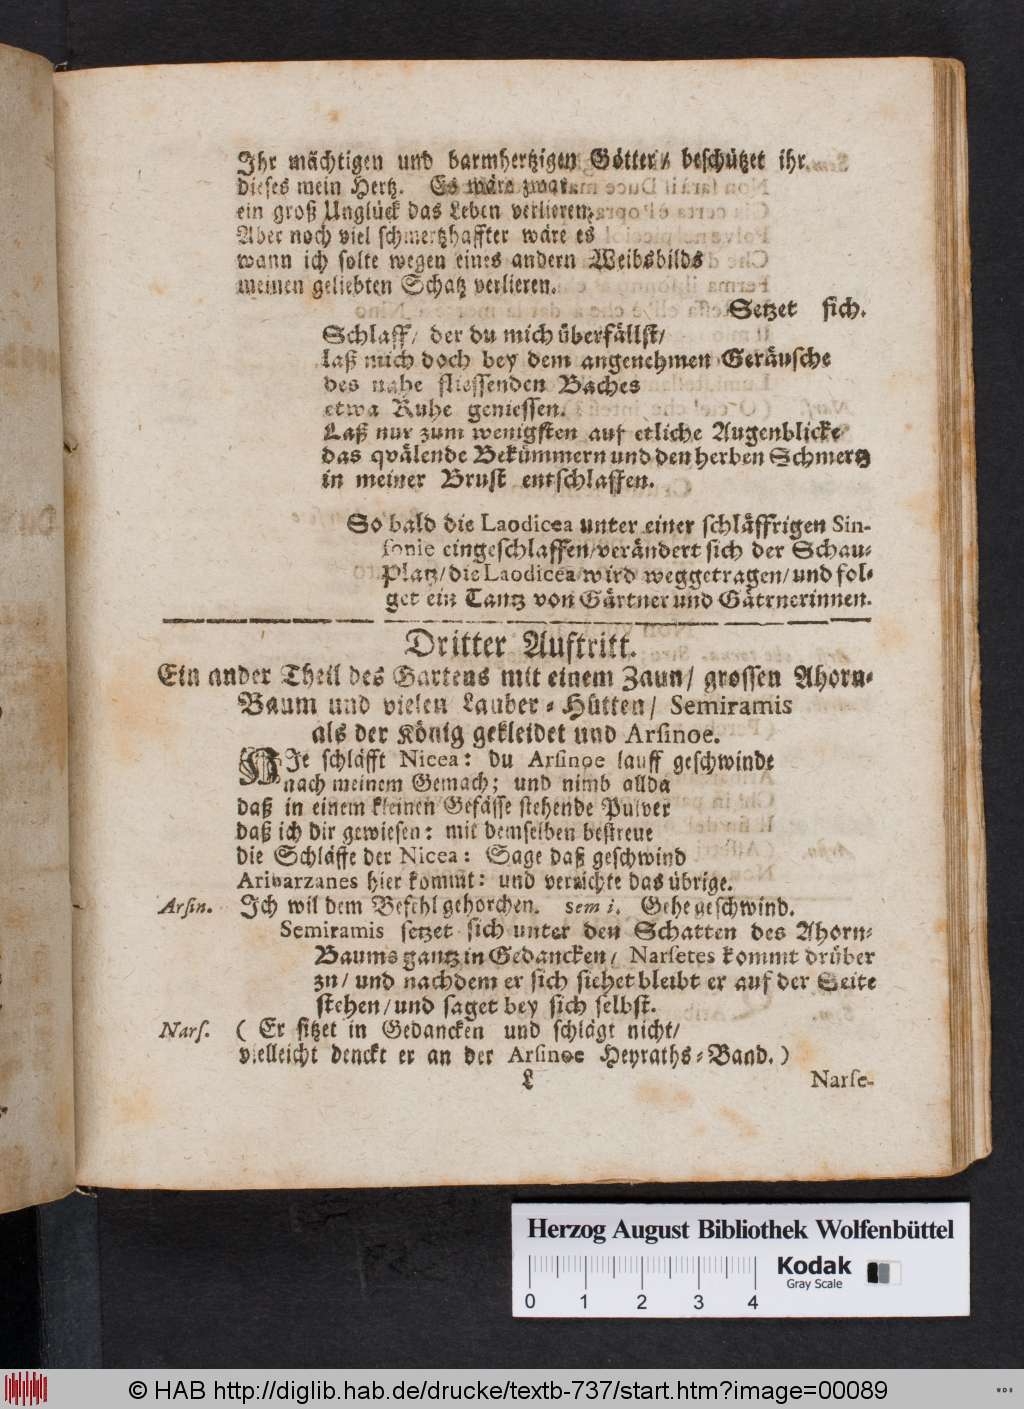 Ihr mächtigen und barmhertzigen Götter / beschützet ihr
dieses mein Hertz. Es wäre zwar
ein groß Unglück das Leben verlieren;
Aber noch viel schmertzhaffter wäre es
wann ich solte wegen eines andern Weibsbilds
meinen geliebten Schatz verlieren.
Setzet sich.
Schlaff / der du mich überfällst /
laß mich doch bey dem angenehmen Geräusche
des nahe fliessenden Baches
etwa Ruhe geniessen.
Laß nur zum wenigsten auf etliche Augenblicke
das qvälende Bekümmern und den herben Schmertz
in meiner Brust entschlaffen.
So bald die Laodicea unter einer schläffrigen Sin-
fonie eingeschlaffen / verändert sich der Schau-
Platz / die Laodicea wird weggetragen / und fol-
get ein Tantz von Gärtner und Gätrnerinnen.
Dritter Auftritt.
Ein ander Theil des Gartens mit einem Zaun / grossen Ahorn-
Baum und vielen Lauber-Hütten / Semiramis
als der König gekleidet und Arsinoe.
HIe schläfft Nicea: du Arsinoe lauff geschwinde
nach meinem Gemach; und nimb allda
daß in einem kleinen Gefässe stehende Pulver
daß ich dir gewiesen: mit demselben bestreue
die Schläffe der Nicea: Sage daß geschwind
Aribarzanes hier kommt: und verrichte das übrige.
Arsin. Ich wil dem Befehl gehorchen. sem i. Gehe geschwind.
Semiramis setzet sich unter den Schatten des Ahorn-
Baums gantz in Gedancken / Narsetes kommt drüber
zu / und nachdem er sich siehet bleibt er auf der Seite
stehen / und saget bey sich selbst.
Nars. ( Er sitzet in Gedancken und schlägt nicht /
vielleicht denckt er an der Arsinoe Heyraths-Band. )
L Narse-
Herzog August Bibliothek Wolfenbüttel
Kodak
Gray Scale
0 1 2 3 4
© HAB http://diglib.hab.de/drucke/textb-737/start.htm?image=00089